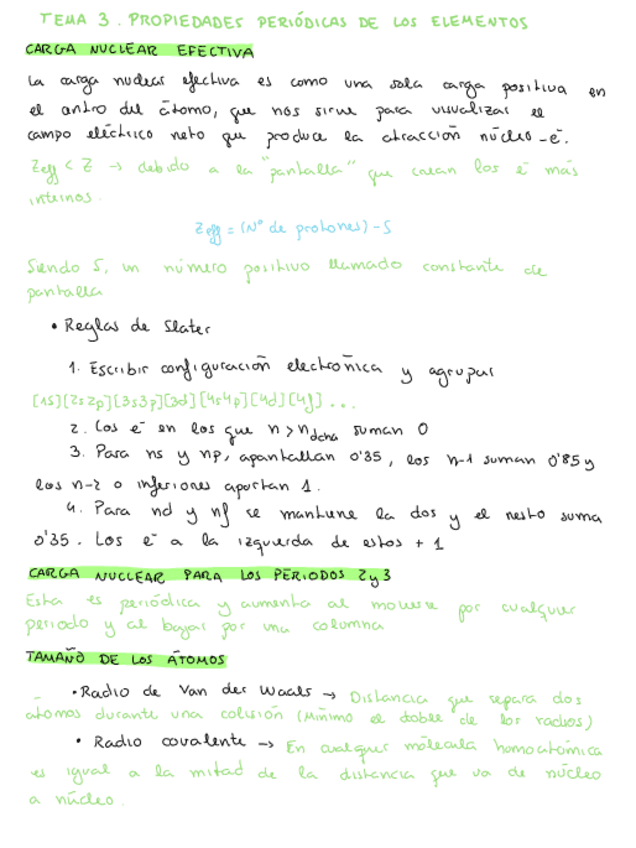 TEMA 3. PROPIEDADES PERIÓDICAS DE LOS ELEMENTOS
CARGA NUCLEAR EFECTIVA
La carga nuclear efectiva es como una sola carga positiva en
el centro del átomo, que nos sirve para visualizar el
campo eléctrico neto que produce la atracción núcleo-e⁻.
Zeff < Z → debido a la "pantalla" que crean los e⁻ más
internos.
Zeff = (Nº de protones) - S
Siendo S, un número positivo llamado constante de
pantalla
• Reglas de Slater
1. Escribir configuración electrónica y agrupar
[1s][2s2p][3s3p][3d][4s4p][4d][4f]...
2. Los e⁻ en los que n > n dcha suman 0
3. Para ns y np, apantallan 0'35, los n-1 suman 0'85 y
los n-2 o inferiores aportan 1.
4. Para nd y nf se mantiene la dos y el resto suma
0'35. Los e⁻ a la izquierda de estos + 1
CARGA NUCLEAR PARA LOS PERIODOS 2 y 3
Esta es periódica y aumenta al moverse por cualquier
periodo y al bajar por una columna
TAMAÑO DE LOS ÁTOMOS
• Radio de Van der Waals → Distancia que separa dos
átomos durante una colisión (Mínimo el doble de los radios)
• Radio covalente → En cualquier molécula homoatómica
es igual a la mitad de la distancia que va de núcleo
a núcleo.